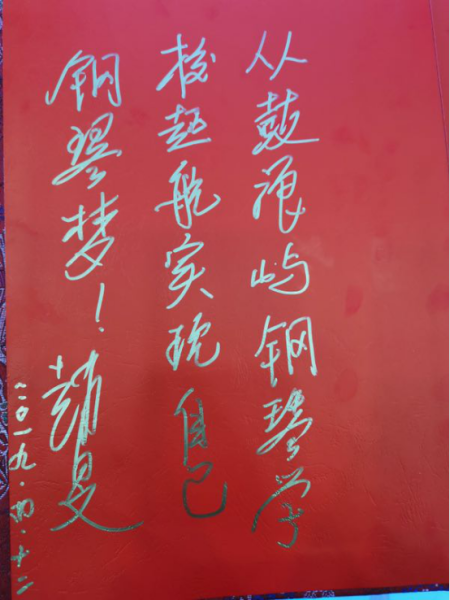 从鼓浪屿钢琴学
校起航实现自己
钢琴梦！
二〇一九·四·十二